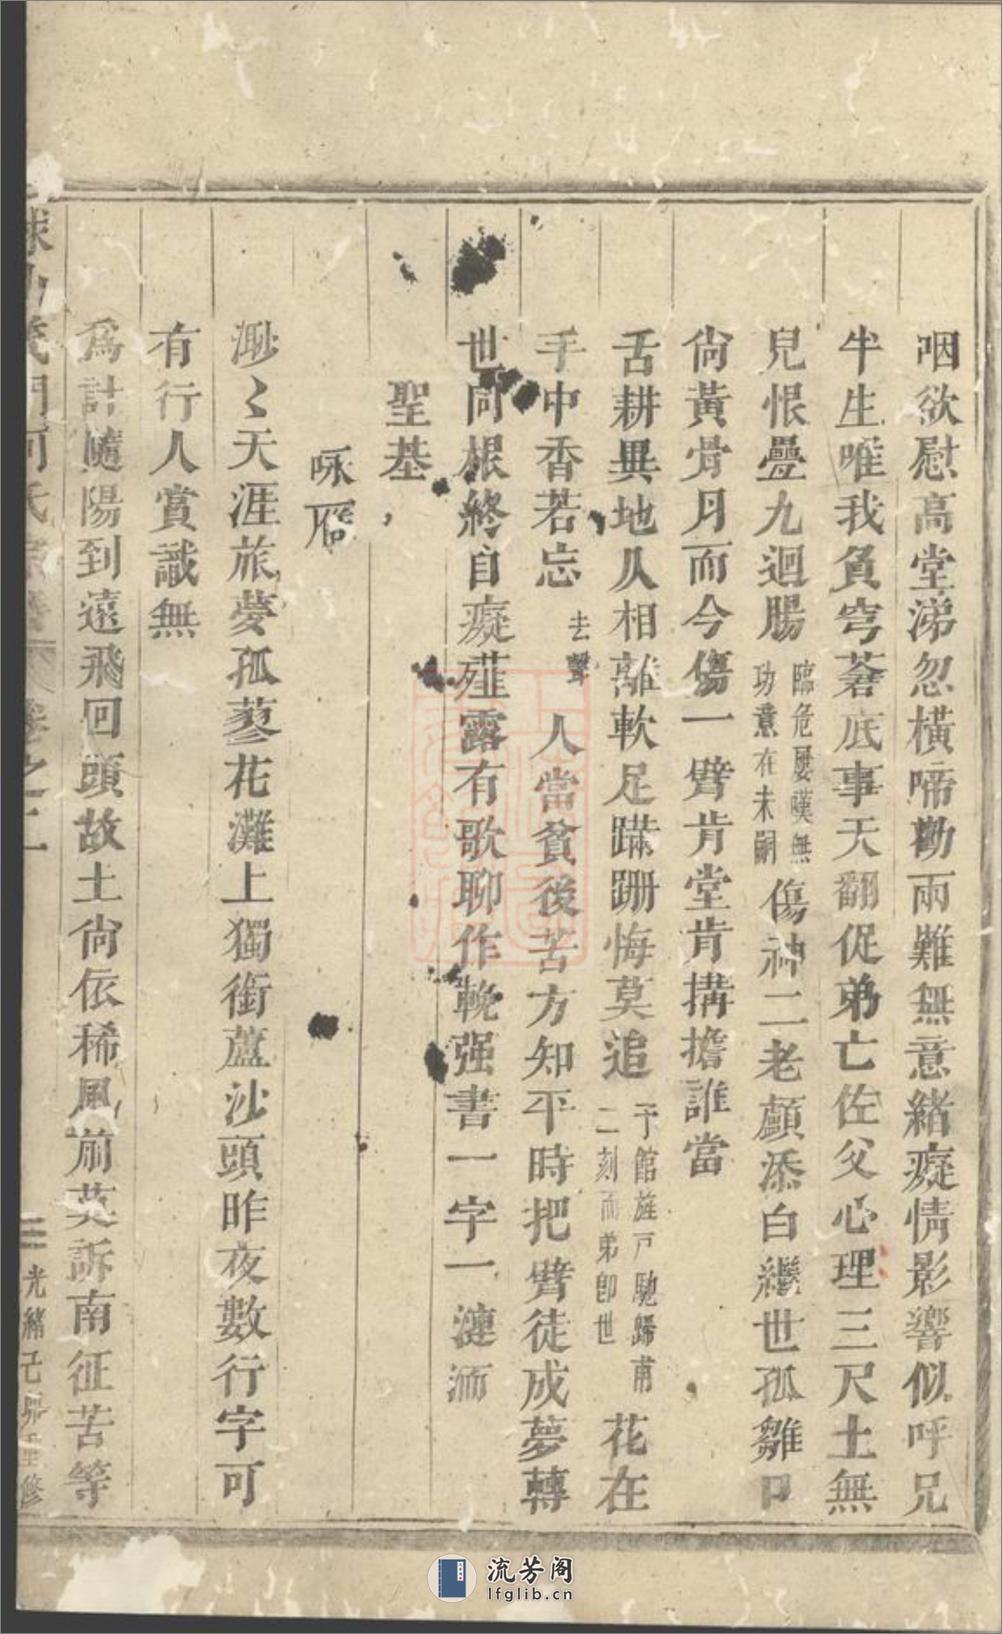 咽欲慰高堂涕忽橫啼勸兩難無意緒癡情影響似呼兄
半生唯我負穹蒼底事天翻促弟亡佐父心理三尺土無
兒恨疊九迴腸
臨危屢嘆無
功意在未嗣
傷神二老顱添白繼世孤雛口
尙黃骨月而今傷一臂肯堂肯搆擔誰當
舌耕異地仄相離軟足蹣跚悔莫追
于館旌戸馳歸甫
二刻而弟卽世
花在
手中香若忘
去聲
人當貧後苦方知平時把臂徒成夢轉
世同根終自癡薤露有歌聊作輓强書一字一漣洏
聖基
咏雁
渺〻天涯旅夢孤蓼花灘上獨銜蘆沙頭昨夜數行字可
有行人賞識無
爲計隨陽到遠飛回頭故土尙依稀風前莫訴南征苦等
氏
卷之二
三
光緖己卯重修
流芳阁
lfglib.cn